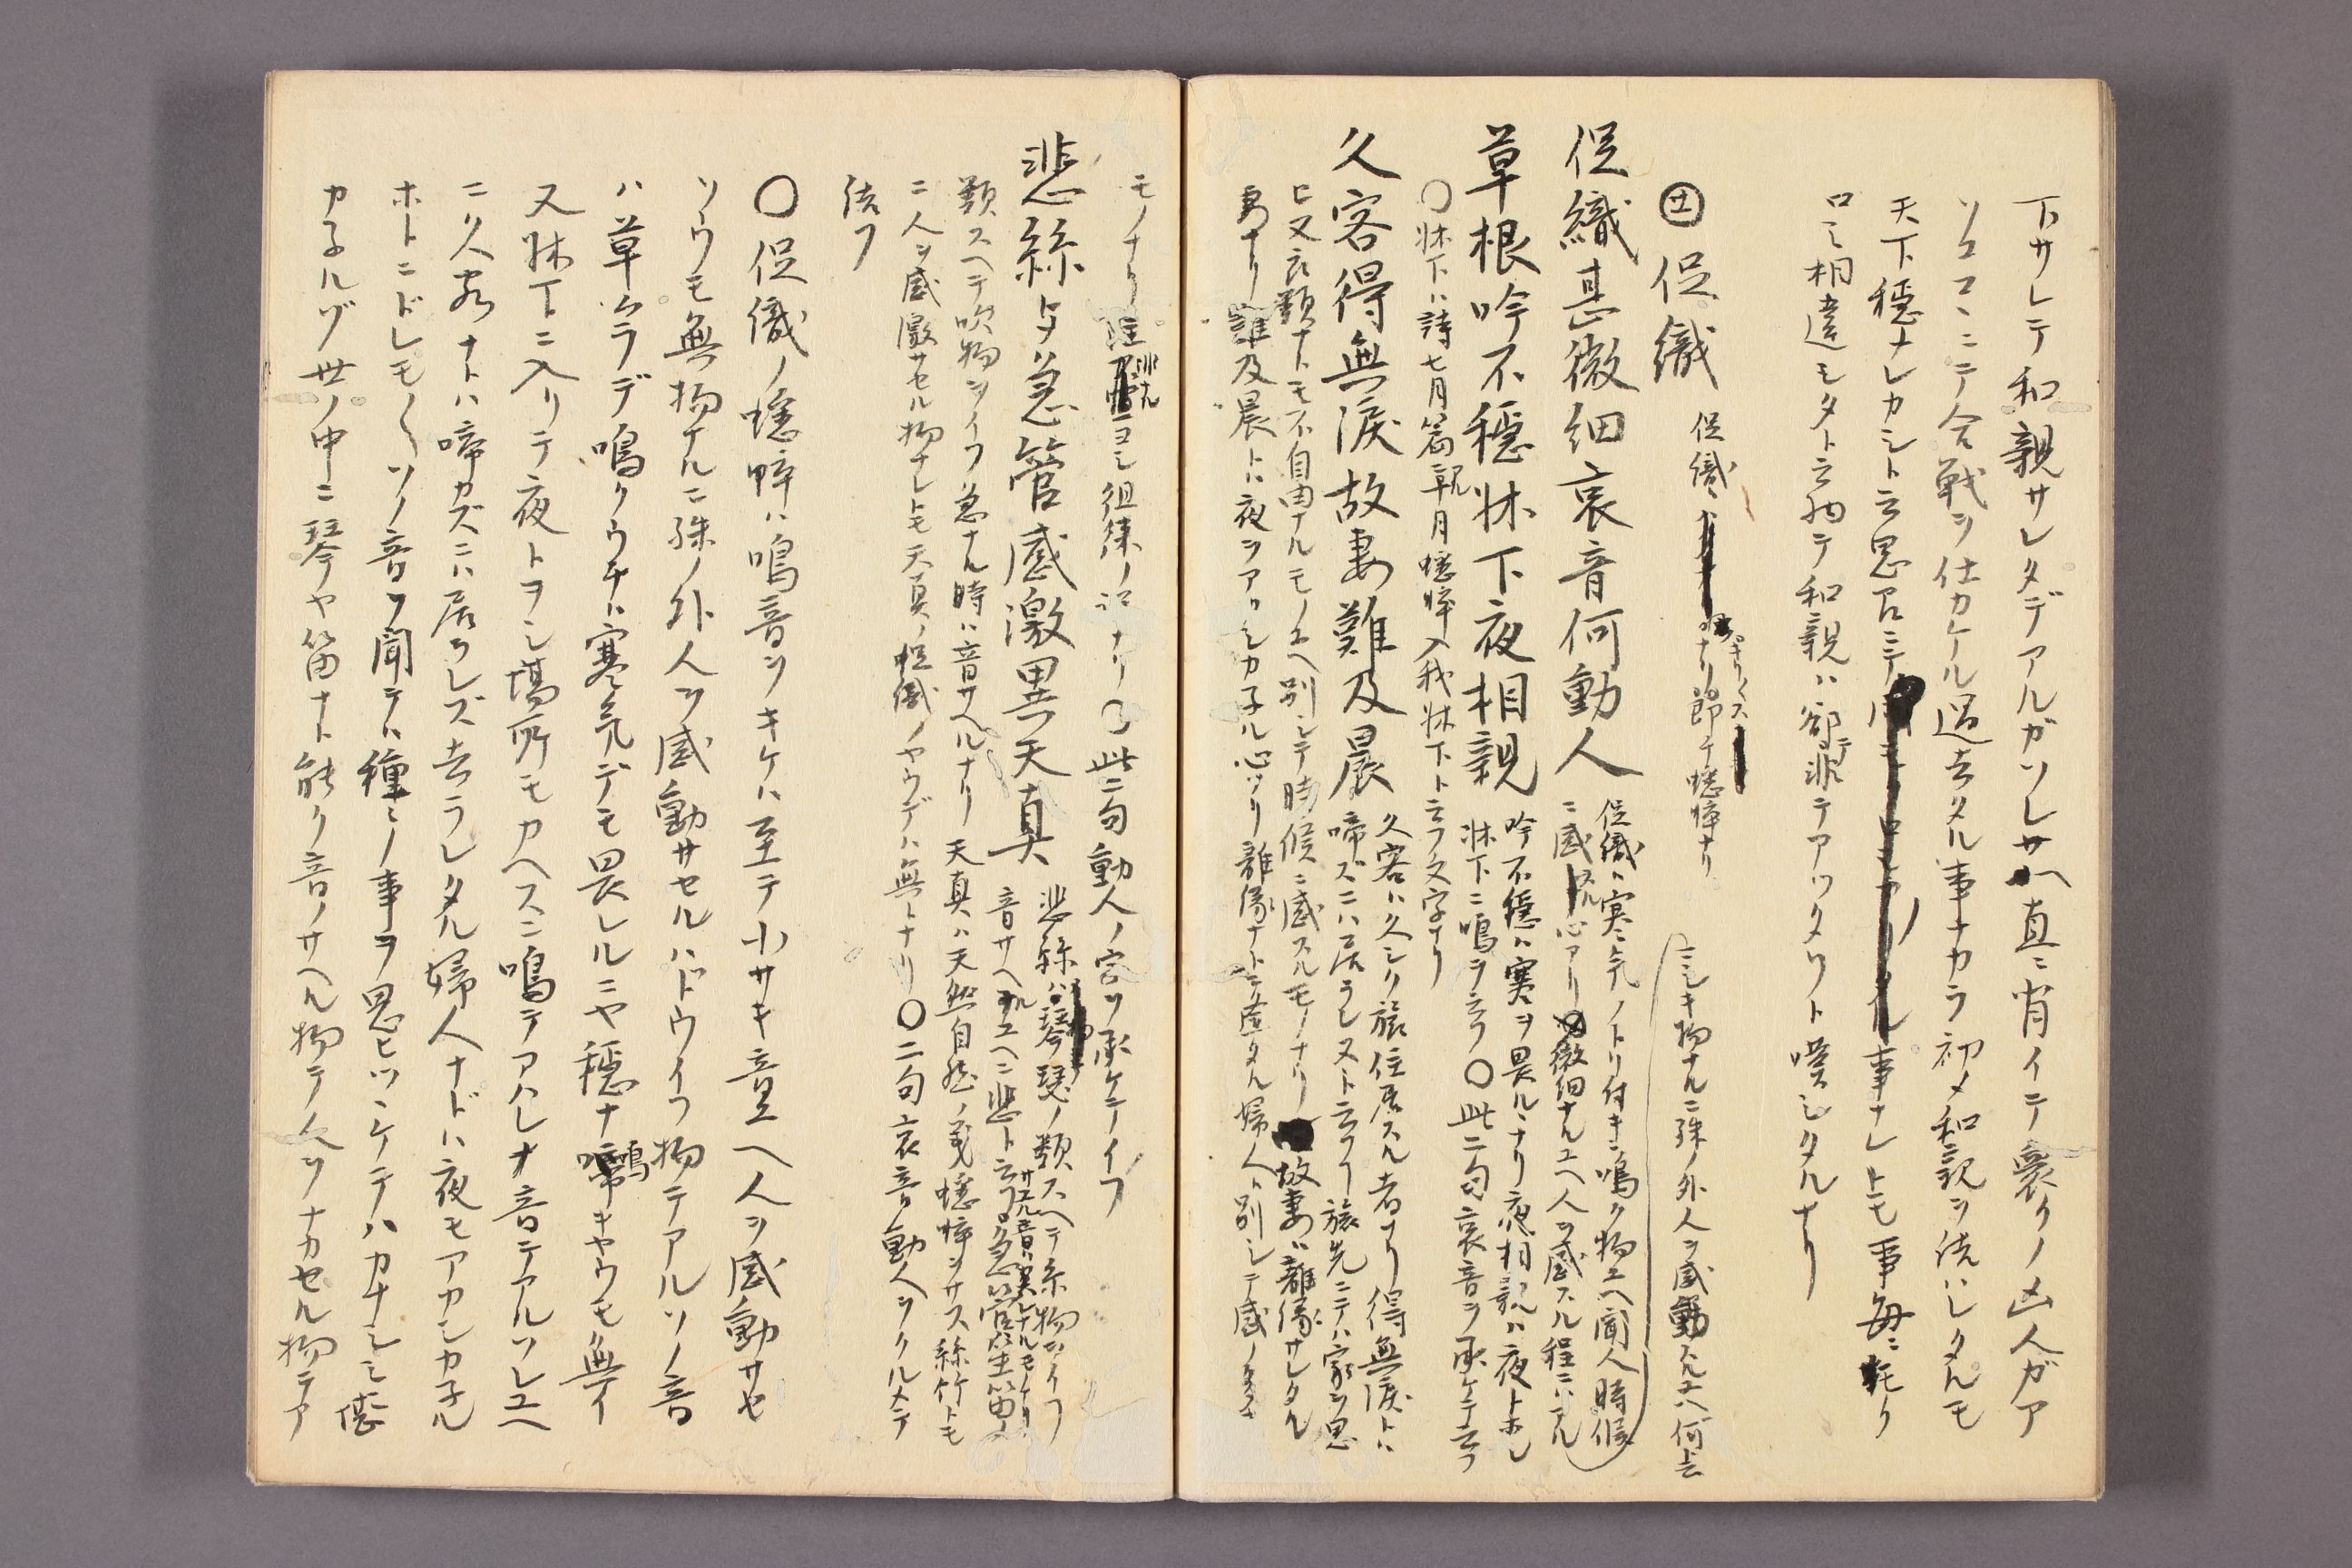 下サレテ和親サレタデアルガソレサヘ真ニ背イテ裏クノ凶人ガア
ソココニテ合戦ヲ仕カケル過去タル事ナカラ初メ和親ヲ結ハレタルモ
天下穏ナレカシト云思召ニテ事ナレトモ事毎ニ
口ミ相違シタト云物テ和親ハ却テ非テアツタワト嘆シタルナリ
促織 促織ハ きりぎりス ナリ即チ蟋蟀ナリ
促織甚微細哀音何動人
促織ハ寒気ノトリ付キニ鳴ク物ユヘ聞人時候
ニ感スル心アリ微細ナルユヘ人ヲ感スル程ニハナル
ニシキ物ナルニ殊ノ外人ヲ感動スルユヘ何ト云
草根吟不穏牀下夜相親
吟不穏ハ寒ヲ畏ルヽナリ夜相親ハ夜トホシ
牀下ニ鳴ヲ云フ〇此二句哀音ヲ承ケテ云フ
〇牀下ハ詩七月篇ニ 月蟋蟀入我牀下ト云フ文字ナリ
久客得無涙故妻難及晨
久客ハ久シク旅住居スル者ナリ得無涙トハ
啼ズニハ居ラレヌト云フ 旅先ニテハ家ヲ思
ヒ又衣類ナトモ不自由ナルモノユヘ別シテ時候ニ感スルモノナリ 故妻ハ離縁サレタル
妻ナリ難及晨トハ夜ヲアカシカネル心ナリ離縁ナトニ逢タル婦人ハ別シテ感ノ
モノナリ 此二句動人ノ字ヲ承ケテイフ
悲絲與急管感激異天真
悲絲ハ琴瑟ノ類スヘテ糸物ヲイフ
音サヘルユヘニ悲ト云フ 急管笙笛ノ
類スヘテ吹物ヲイフ急ナル時ハ音サヘルナリ 天真ハ天然自然ノ義蟋蟀ヲサス絲竹トモ
ニ人ヲ感激サセル物ナレトモ天真ノ促織ノヤウデハ無トナリ〇二句哀音動人ヲクルメテ
結フ
〇促織ノ蟋蟀ハ鳴音ヲキケハ至テ小サキ音ユヘ人ヲ感動サセ
ソウモ無物ナルニ殊ノ外人ヲ感動サセルハドウイフ物テアルソノ音
ハ草ムラデ鳴クウチハ寒気デモ畏レルニヤ穏ナ鳴キヤウモ無イ
又牀下ニ入リテ夜トヲシ場所モカヘスニ鳴テアハレナ音テアルソレユヘ
ニ久客ナトハ啼カズニハ居ラレズ去ラレタル婦人ナドハ夜モアカシカネル
ホトニドレモ〱ソノ音ヲ聞テハ種ミノ事ヲ思ヒツヽケテハカナシミ
カネルゾ世ノ中ニ琴ヤ笛ナト能ク音ノサヘル物テ人ヲナカセル物テア